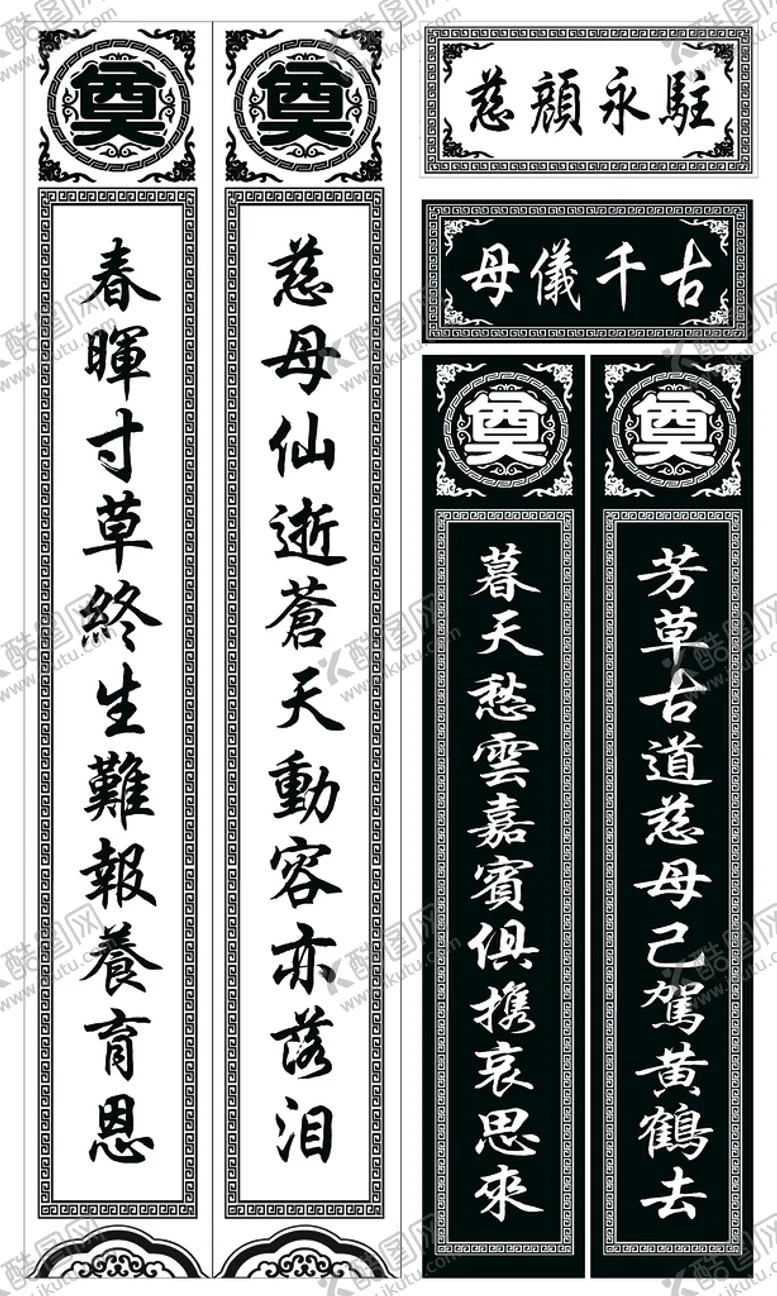 奠
慈母仙逝蒼天動容亦落泪
奠
春暉寸草終生難報養育恩
慈顔永駐
母儀千古
奠
芳草古道慈母己駕黄鶴去
奠
暮天愁雲嘉賓俱携哀思來
酷图网
www.ikutu.com